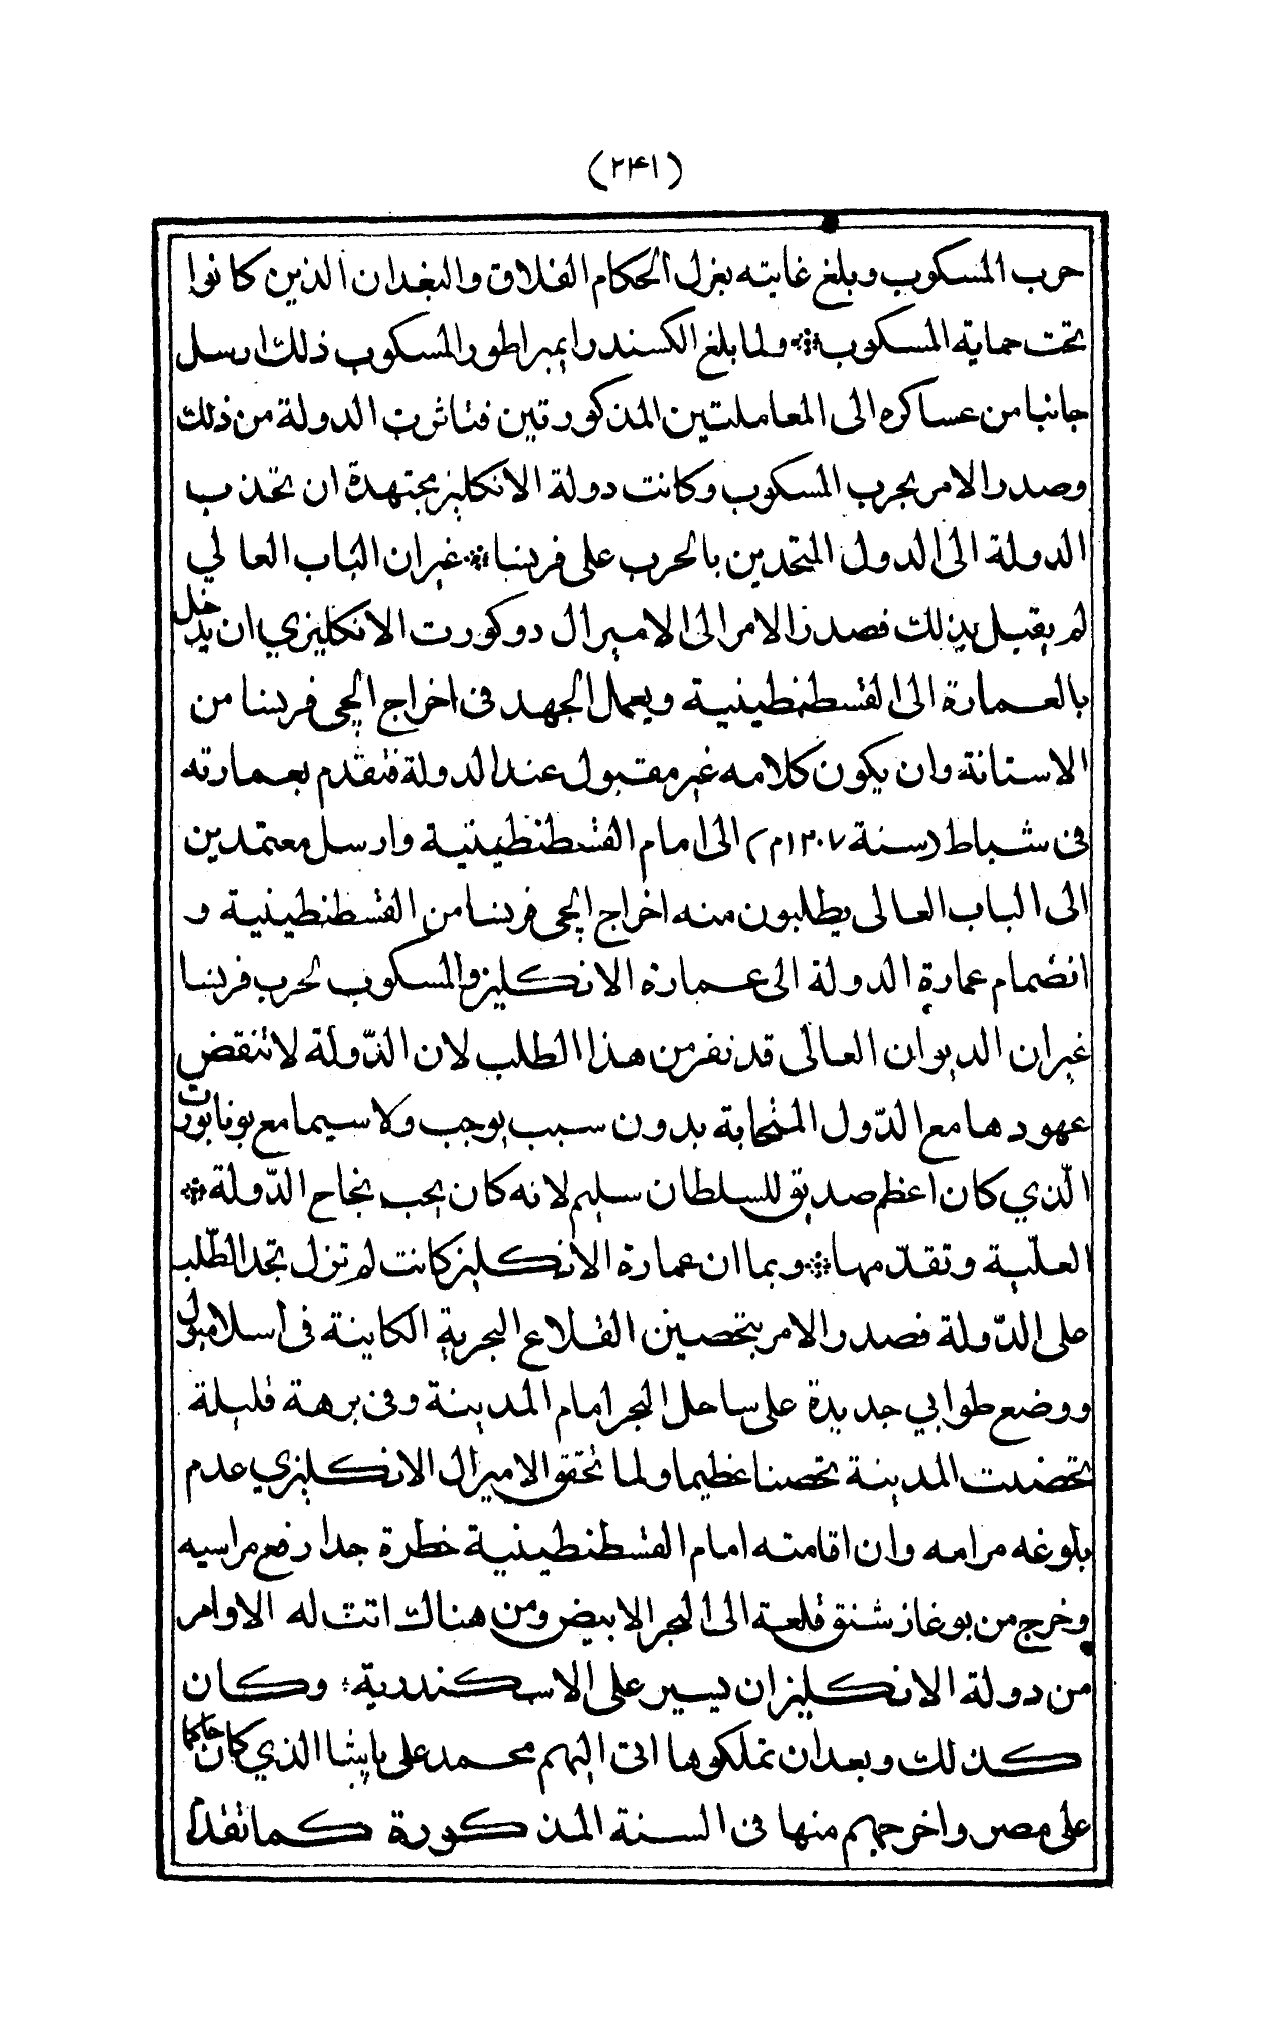 (٢٤١)
حرب المسكوب وبلغ غايته بعزل الحكام الفلاق والبغدان الذين كانوا
تحت حماية المسكوب ※ ولما بلغ الكسندر ايمبراطور المسكوب ذلك ارسل
جانبا من عساكره الى المعاملتين المذكورتين فتاثرت الدولة من ذلك
وصدر الامر بحرب المسكوب وكانت دولة الانكليز مجتهدة ان تجذب
الدولة الى الدول المتحدين بالحرب على فرنسا ※ غير ان الباب العالي
لم يقبل بذلك فصدر الامر الى الاميرال دوكورت الانكليزي ان يدخل
بالعمارة الى القسطنطينية ويعمل الجهد في اخراج الچي فرنسا من
الاستانة وان يكون كلامه غير مقبول عند الدولة فتقدم بعمارته
في شباط (سنة ١٣٠٧م) الى امام القسطنطينية وارسل معتمدين
الى الباب العالى يطلبون منه اخراج الچي فرنسا من القسطنطينية و
انضمام عمارة الدولة الى عمارة الانكليز والمسكوب لحرب فرنسا
غير ان الديوان العالى قد نفر من هذا الطلب لان الدّولة لا تنقض
عهودها مع الدّول المتحابة بدون سبب يوجب ولا سيما مع بونابورت
الّذي كان اعظم صديق للسلطان سليم لانه كان يحب نجاح الدّولة ※
العلّية وتقدّمها ※ وبما ان عمارة الانكليز كانت لم تزل تجد الطّلب
على الدّولة فصدر الامر بتحصين القلاع البحرية الكاينة في اسلامبول
ووضع طوابي جديدة على ساحل البحر امام المدينة وفي برهة قليلة
تحصنت المدينة تحصنا عظيما ولما تحقق الاميرال الانكليزي عدم
بلوغه مرامه وان اقامته امام القسطنطينية خطرة جدا رفع مراسيه
وخرج من بوغاز شنق قلعة الى البحر الابيض ومن هناك اتت له الاوامر
من دولة الانكليز ان يسير على الاسكندرية ؛ وكان
كذلك وبعد ان تملكوها اتى اليهم محمد على پاشا الذي كان حاكما
على مصر واخرجهم منها في السنة المذكورة كما تقدم